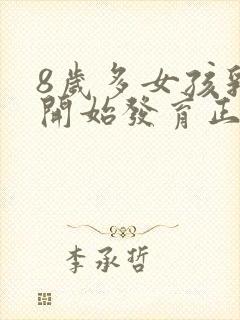 8歲多女孩乳
開始發育正
李承哲